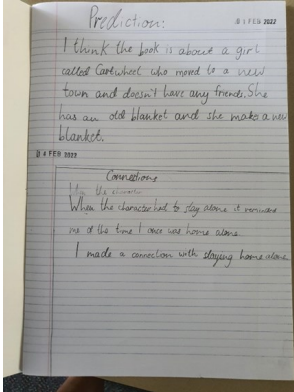 Prediction:
01 FEB 2022
I think the book is about a girl
called Cartwheel who moved to a new
town and doesn't have any friends. She
has an old blanket and she make a new
blanket.
04 FEB 2022
Connections
When the character had to stay alone it reminds
me of the time I once was home alone
I made a connection with staying home alone